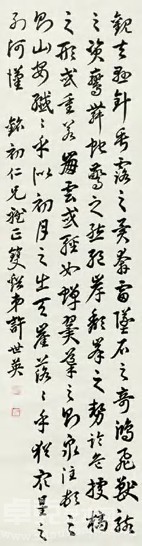 觀夫懸針垂露之異奔雷墜石之奇鴻飛獸駭
之資鸞舞蛇驚之態絕岸頹峯之勢臨危據槁
之形或重若崩雲或輕如蟬翼導之則泉注頓之
則山安纖纖乎似初月之出天崖落落乎猶衆星之
列河漢 銘初仁兄雅正 雙溪弟許世英